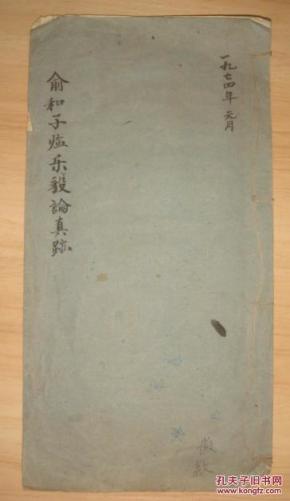 一九七四年 元月
俞和子临乐毅論真跡
孔夫子旧书网